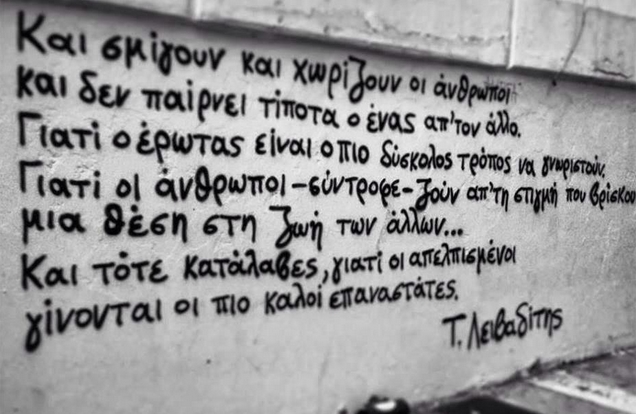 Και σμίγουν και χωρίζουν οι άνθρωποι
και δεν παίρνει τίποτα ο ένας απ'τον άλλο.
Γιατί ο έρωτας είναι ο πιο δύσκολος τρόπος να γνωριστούν.
Γιατί οι άνθρωποι-σύντροφε-ζούν απ'τη στιγμή που βρίσκου
μια θέση στη ζωή των άλλων...
Και τότε κατάλαβες, γιατί οι απελπισμένοι
γίνονται οι πιο καλοί επαναστάτες.
Τ. Λειβαδίτης